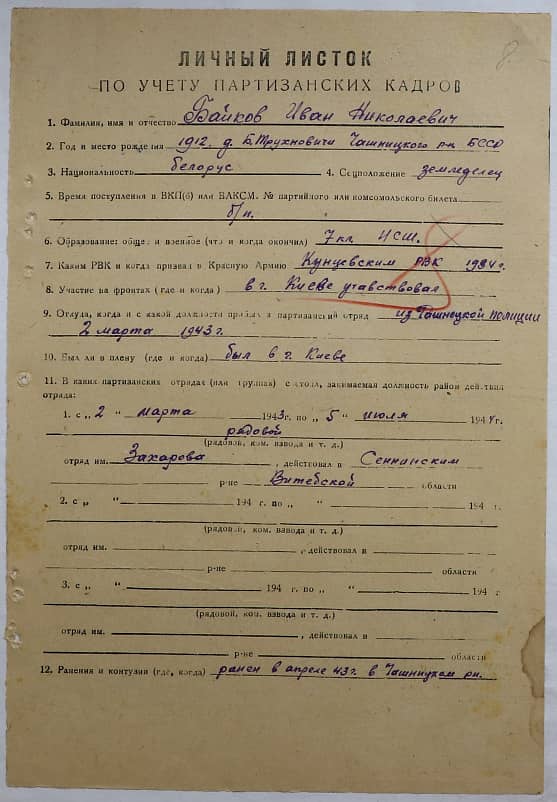 8
ЛИЧНЫЙ ЛИСТОК
ПО УЧЕТУ ПАРТИЗАНСКИХ КАДРОВ
1. Фамилия, имя и отчество Байков Иван Николаевич
2. Год и место рождения 1912 д. Б.Трухновичи Чашницкого р-н БССР
3. Национальность белорус 4. Соцположение земледелец
5. Время поступления в ВКП(б) или ВЛКСМ. № партийного или комсомольского билета
б/п.
6. Образование: общее и военное (что и когда окончил) 7 кл. НСШ.
7. Каким РВК и когда призван в Красную Армию Кунцевским РВК 1934 г.
8. Участие на фронтах (где и когда) в г. Киеве учавствовал
9. Откуда, когда и с какой должности прибыл в партизанский отряд из Чашнецкой полиции
2 марта 1943 г.
10. Был ли в плену (где и когда) был в г. Киеве
11. В каких партизанских отрядах (или группах) состоял, занимаемая должность район действия
отряда:
1. с „ 2 " марта 1943 г. по „ 5 " июля 1944 г.
рядовой
(рядовой, ком. взвода и т. д.)
отряд им. Захарова, действовал в Сеннинским
р-не Витебской области
2. с „ " 194 г. по „ " 194 г.
(рядовой, ком. взвода и т. д.)
отряд им. , действовал в
р-не области
3. с „ " 194 г. по „ " 194 г.
(рядовой, ком. взвода и т. д.)
отряд им. , действовал в
р-не области
12. Ранения и контузии (где, когда) ранен в апреле 43 г. в Чашницком рн.